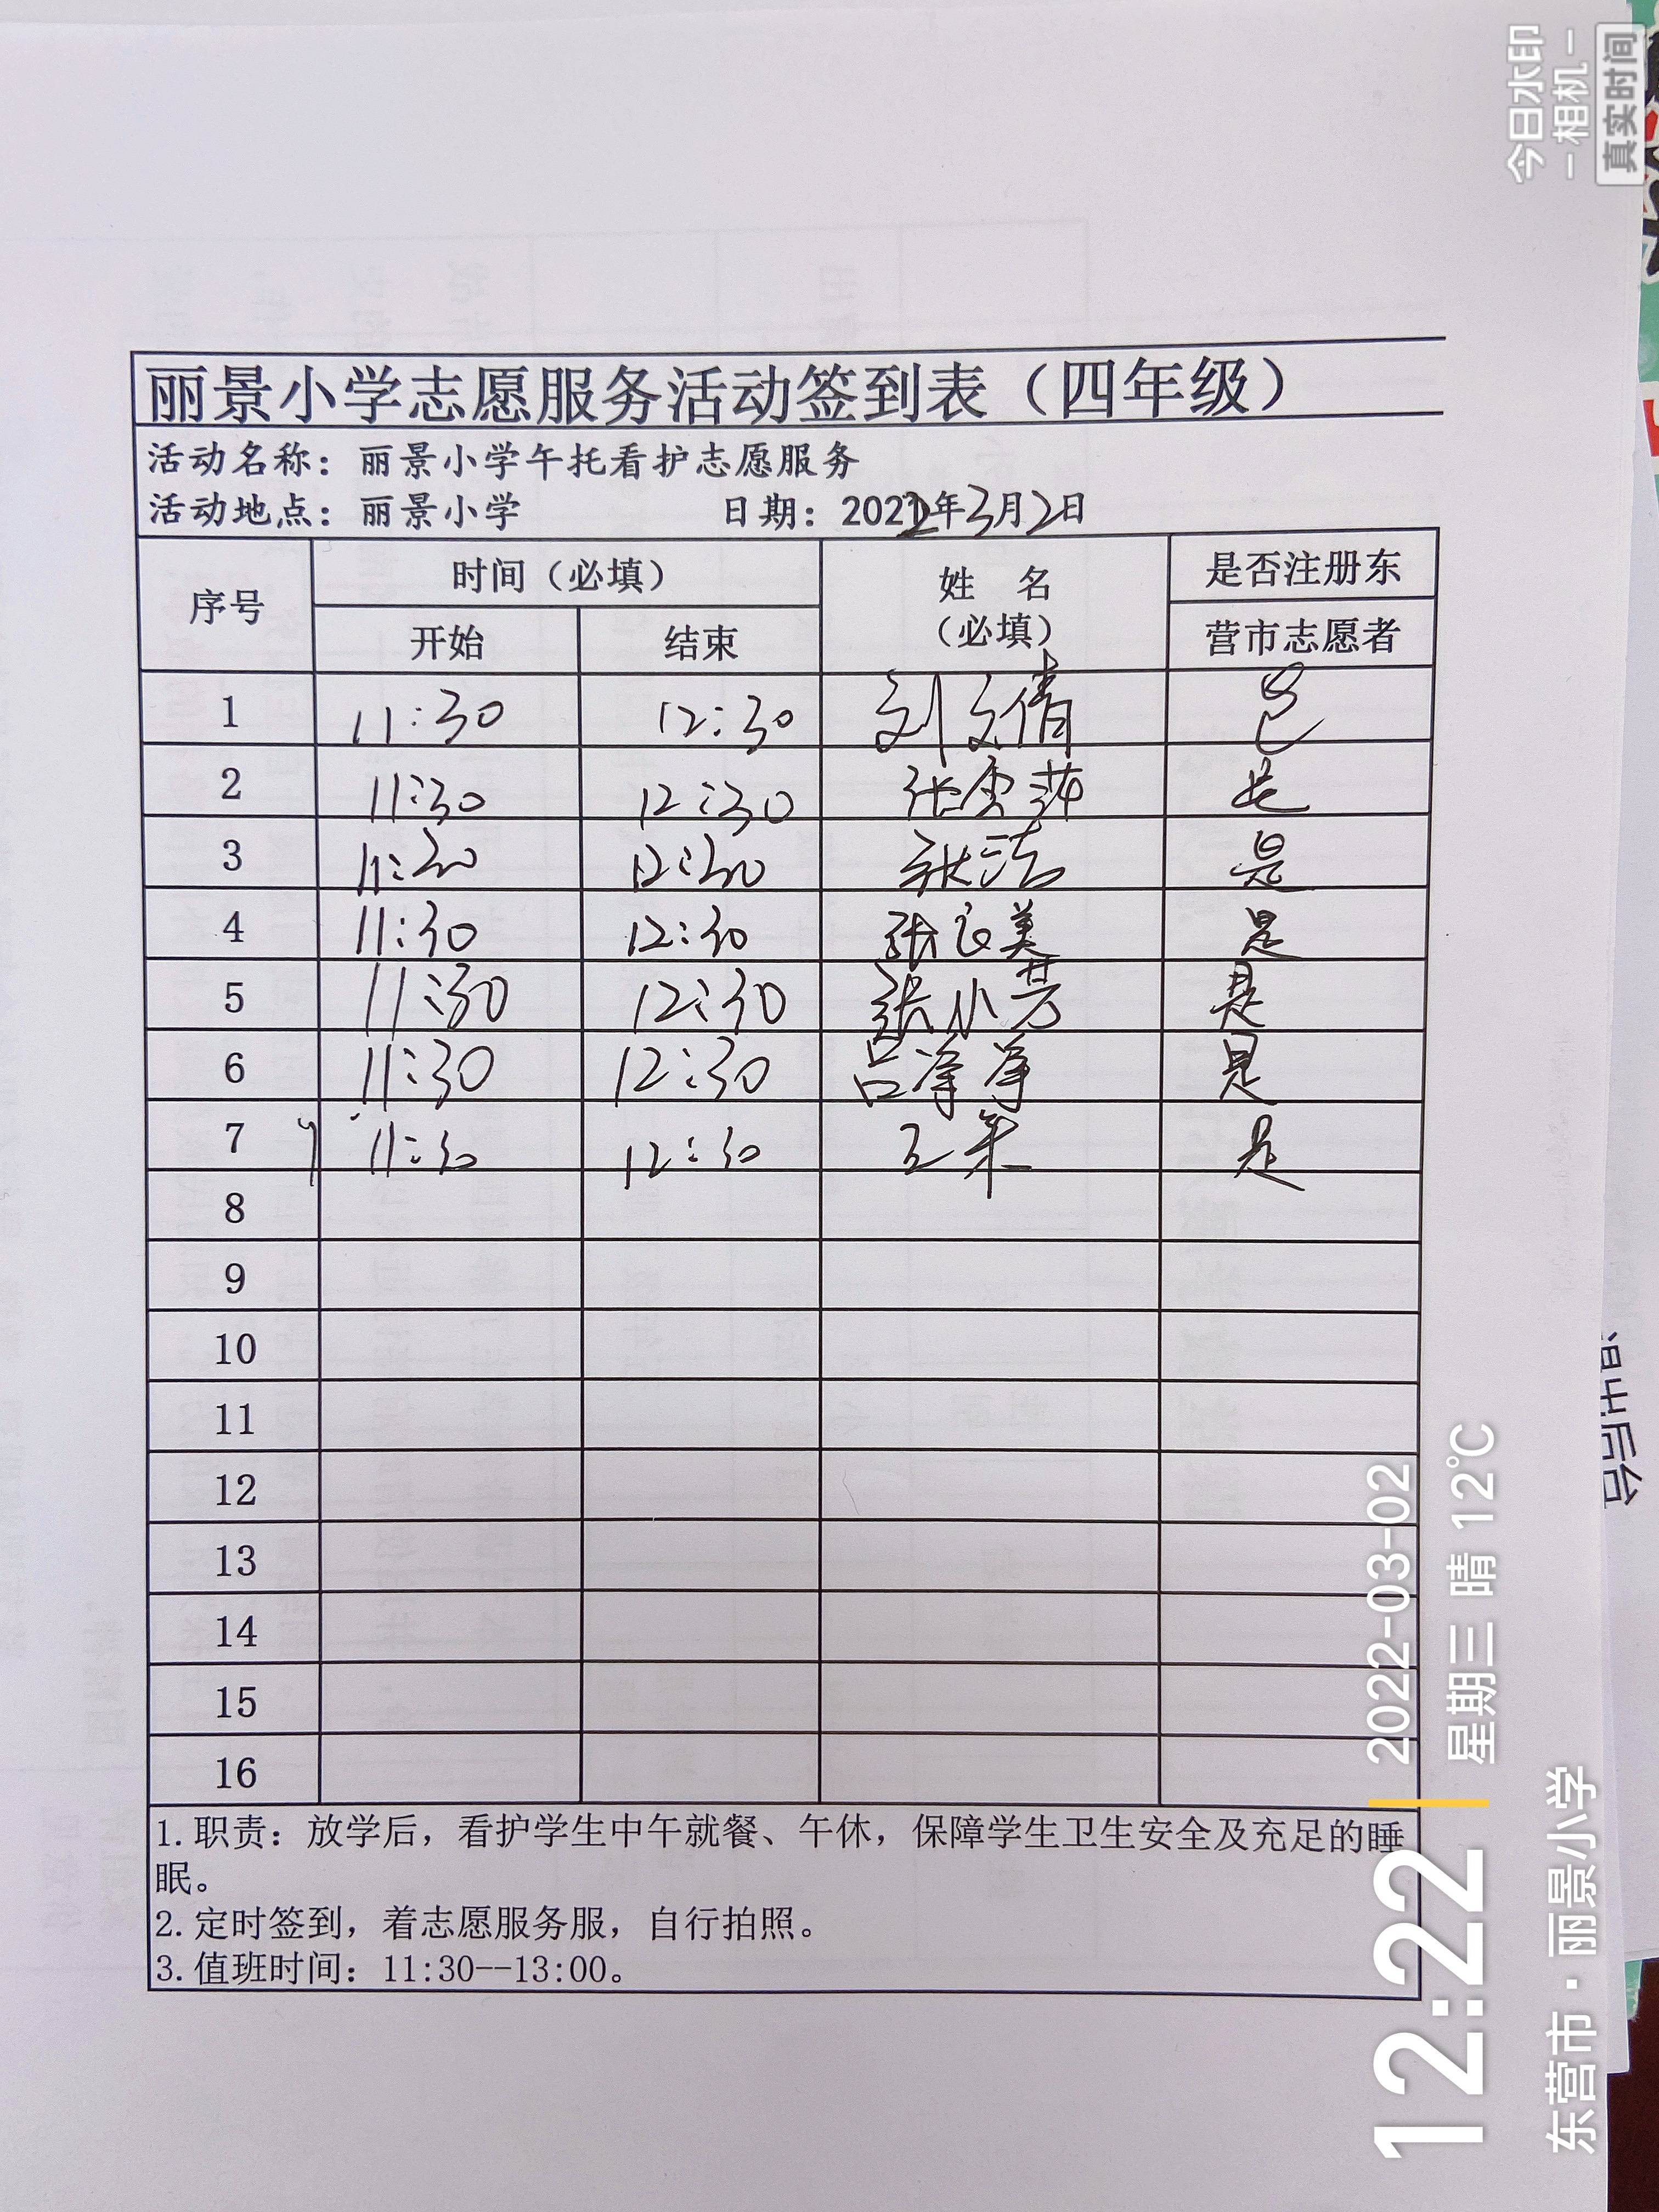 丽景小学志愿服务活动签到表（四年级）
活动名称：丽景小学午托看护志愿服务
活动地点：丽景小学 日期：2022年3月2日
序号 时间（必填） 姓 名（必填） 是否注册东营市志愿者
开始 结束
1 11:30 12:30 刘文倩 是
2 11:30 12:30 张雪莎 是
3 11:30 12:30 张洁 是
4 11:30 12:30 张良美 是
5 11:30 12:30 张小芳 是
6 11:30 12:30 吕峥峥 是
7 11:30 12:30 王 是
8
9
10
11
12
13
14
15
16
1.职责：放学后，看护学生中午就餐、午休，保障学生卫生安全及充足的睡
眠。
2.定时签到，着志愿服务服，自行拍照。
3.值班时间：11:30--13:00。
今日水印
-相机-
真实时间
12:22
2022-03-02
星期三 晴 12℃
东营市·丽景小学
出后台